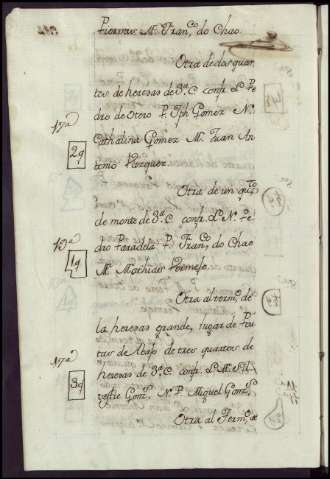 Franc.º do Chao
Otra de dos quar
tos de heresas de 3ª C conf. L. Pe
dro de Otero P. Jph Gomez N.
Cathalina Gomez M. Juan An
tonio Vazquez
17ª
2q
Otra de un qto
de monte de 3ª C conf. L. N. Pe
dro Paradela P. Franco do Chao
M. Mathias
1q
Otra al term.º de
la heresas grande, lugar de
tas de Abajo de tres quartos de
17ª
heresas de 3ª C conf. L. M. Sil
vestre Gomz. N. P. Miguel Gomz.
3q
Otra al Term.º de